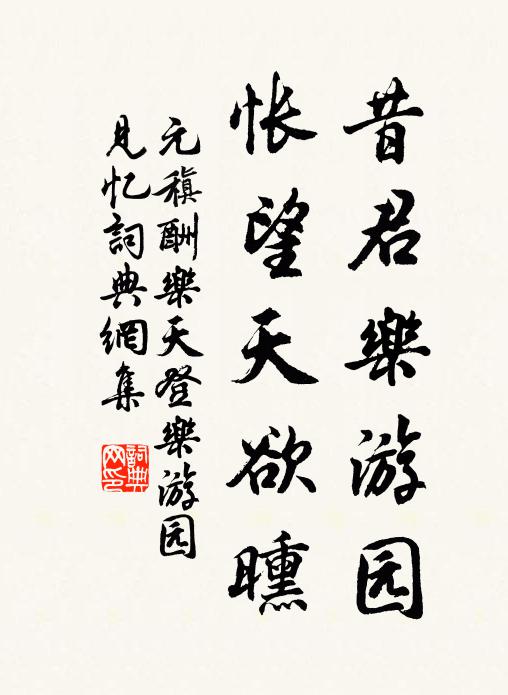 昔君樂游园
怅望天欲曛
元稹酬樂天登樂游园
见忆詞典網集
詞典
网印